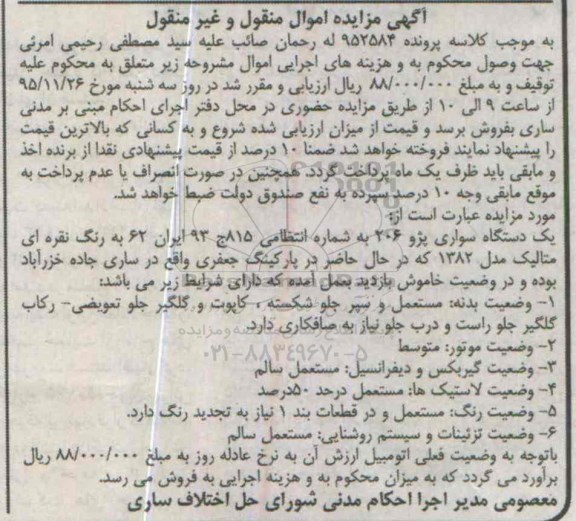 آگهی مزایده اموال منقول و غیر منقول
به موجب کلاسه پرونده ۹۵۲۵۸۴ له رحمان صائب علیه سید مصطفی رحیمی امرئی
جهت وصول محکوم به و هزینه های اجرایی اموال مشروحه زیر متعلق به محکوم علیه
توقیف و به مبلغ ۸۸/۰۰۰/۰۰۰ ریال ارزیابی و مقرر شد در روز سه شنبه مورخ ۹۵/۱۱/۲۶
از ساعت ۹ الی ۱۰ از طریق مزایده حضوری در محل دفتر اجرای احکام مبنی بر مدنی
ساری بفروش برسد و قیمت از میزان ارزیابی شده شروع و به کسانی که بالاترین قیمت
را پیشنهاد نمایند فروخته خواهد شد ضمنا ۱۰ درصد از قیمت پیشنهادی نقدا از برنده اخذ
و مابقی باید ظرف یک ماه پرداخت گردد. همچنین در صورت انصراف یا عدم پرداخت به
موقع مابقی وجه ۱۰ درصد سپرده به نفع صندوق دولت ضبط خواهد شد.
مورد مزایده عبارت است از:
یک دستگاه سواری پژو ۲۰۶ به شماره انتظامی ۸۱۵ج ۹۳ ایران ۶۲ به رنگ نقره ای
متالیک مدل ۱۳۸۲ که در حال حاضر در پارکینگ جعفری واقع در ساری جاده خزرآباد
بوده و در وضعیت خاموش بازدید بعمل آمده که دارای شرایط زیر می باشد:
۱- وضعیت بدنه: مستعمل و سپر جلو شکسته ، کاپوت و گلگیر جلو تعویضی- رکاب
گلگیر جلو راست و درب جلو نیاز به صافکاری دارد.
۲- وضعیت موتور: متوسط
۳- وضعیت گیربکس و دیفرانسیل: مستعمل سالم
۴- وضعیت لاستیک ها: مستعمل درحد ۵۰درصد
۵- وضعیت رنگ: مستعمل و در قطعات بند ۱ نیاز به تجدید رنگ دارد.
۶- وضعیت تزئینات و سیستم روشنایی: مستعمل سالم
باتوجه به وضعیت فعلی اتومبیل ارزش آن به نرخ عادله روز به مبلغ ۸۸/۰۰۰/۰۰۰ ریال
برآورد می گردد که به میزان محکوم به و هزینه اجرایی به فروش می رسد.
معصومی مدیر اجرا احکام مدنی شورای حل اختلاف ساری
۰۲۱-۸۸۳۴۹۶۷۰-۵